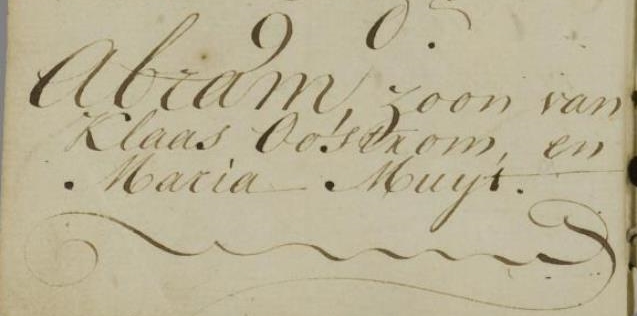 Abram, zoon van
Klaas Oostrom, en
Maria Muyt.